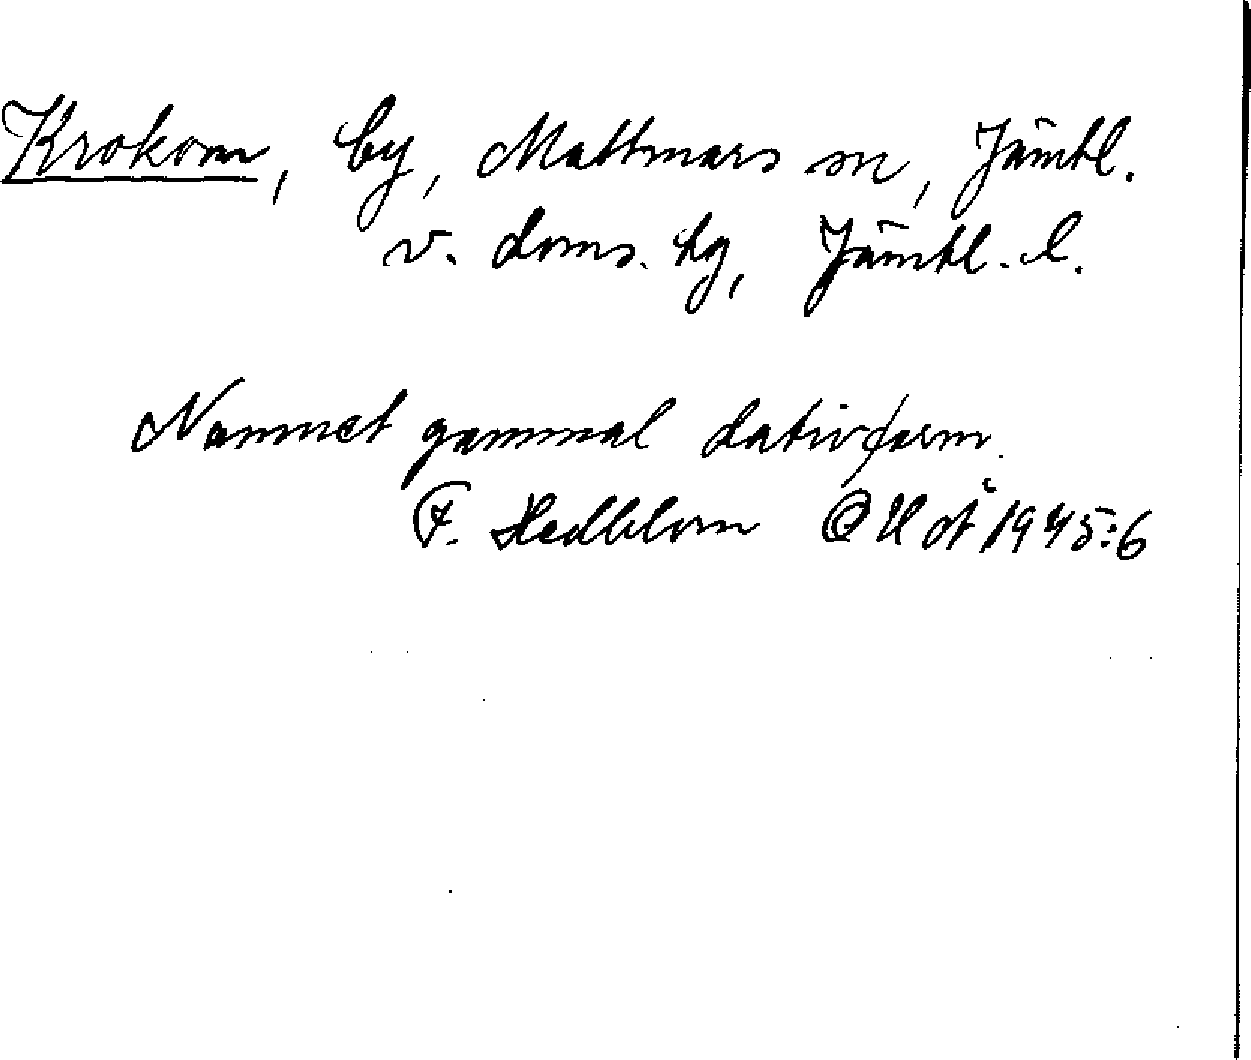 Krokom, by, Mattmars sn, Jämtl.
v. doms. hg, Jämtl. l.
Namnet gammal dativform.
F. Hedblom OUÅ 1945:6